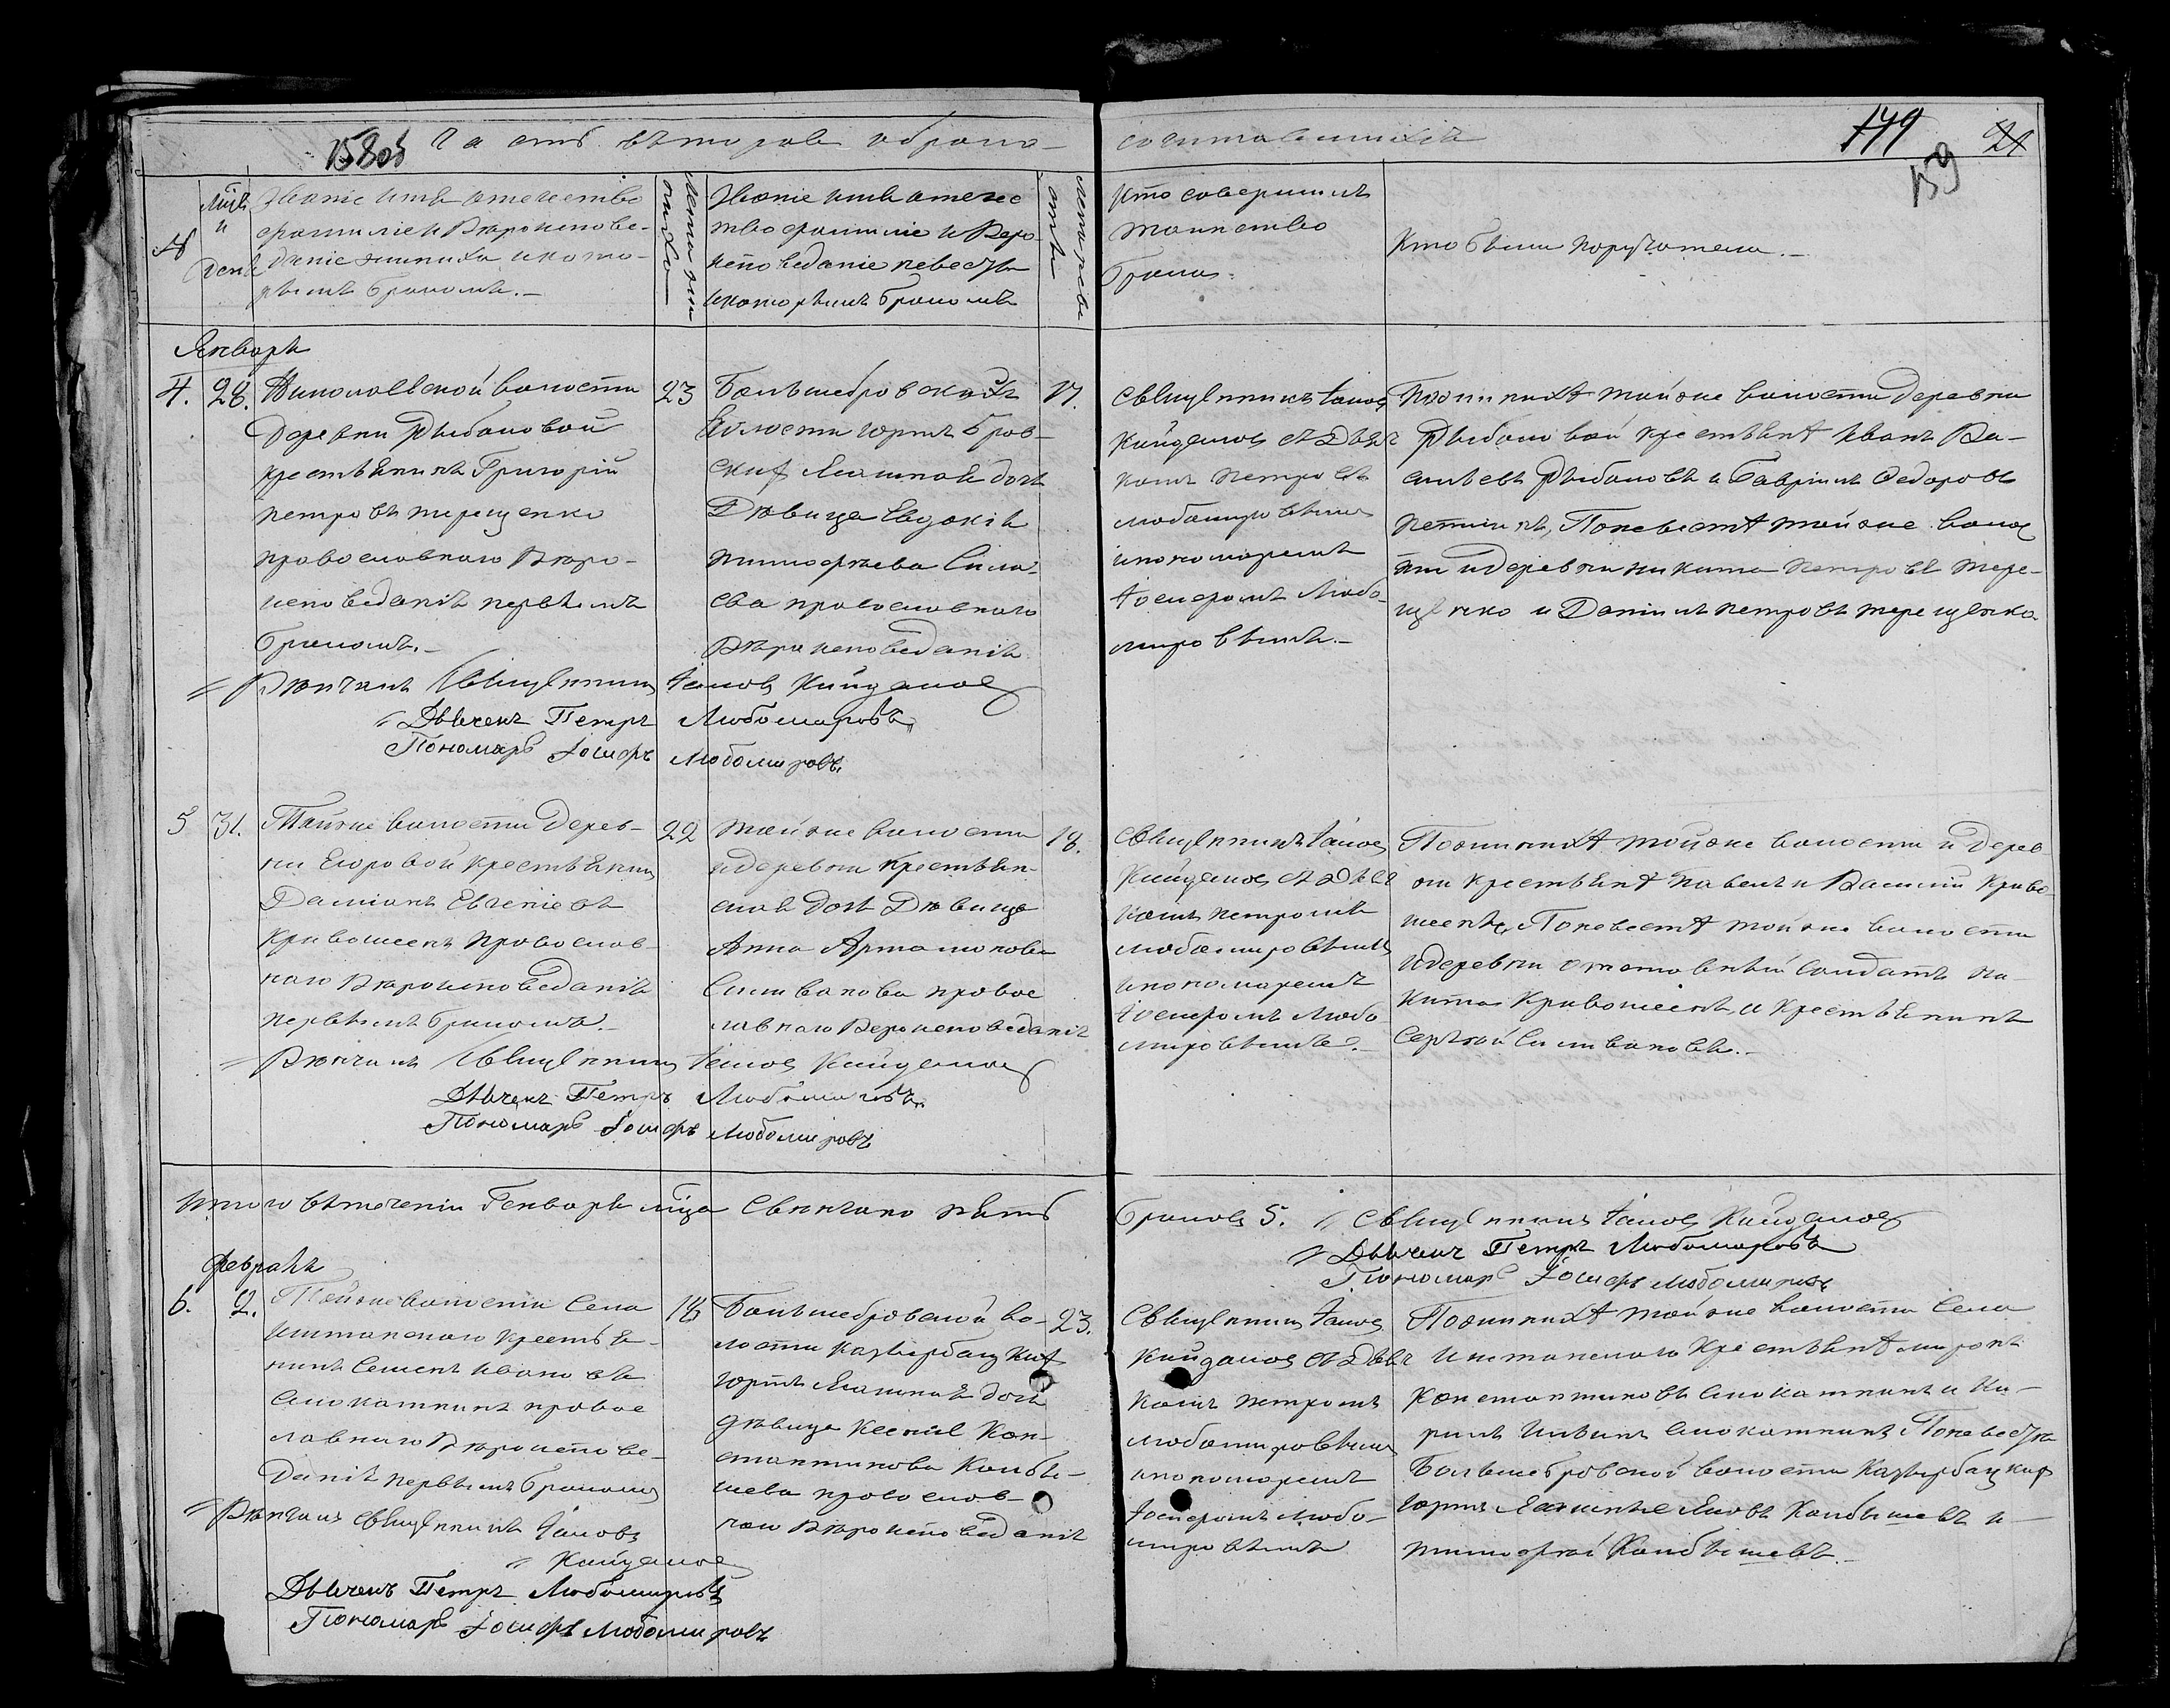 Часть вторая о брако-
сочитавшихся
149
159
21
№
Мѣсяцъ и День
Званіе имя отечество
фамиліе и Вѣроиспове-
даніе жениха и кото-
рымъ бракомъ.-
Лета жениха
Званіе имя отечес
тво фамиліе и Веро-
исповеданіе невесты
и которымъ бракомъ
Лета невесты
Кто совершилъ
таинство
брака.
Кто были поручители.-
Январь
4. 28. Николаевской волости
Деревни Рыбаловой
крестьянинъ Григорій
Петровъ терещенко
православнаго Вѣро-
исповеданія первымъ
бракомъ.-
23
Большебровских
Волости юртъ Бров-
ских Ясашная дочь
Дѣвица Евдокія
тимофѣева
православнаго
Вѣроисповеданія
17.
Священникъ Іаков
Кайдалов съ Дья
комъ Петромъ
Любомировымъ
и пономаремъ
Іосифомъ Любо-
мировымъ.-
По жениху той же волости деревни
Рыбаловой крестьяне Иванъ Ва-
сильевъ Рыбаловъ и Гавріилъ Федоровъ
Поневесте той же волос
ти и деревни никита Петровъ тере-
щенко и Даніилъ петровъ терещенко.
Вѣнчалъ Священникъ Іаков Кайдалов
Дьячекъ Петръ Любомировъ
Пономарь Іосифъ Любомировъ.
5 31. Тойже волости Дерев-
ни Егоровой крестьянин
Даміанъ Евгеніевъ
Кривошеенъ Православ-
наго Вѣроисповеданія
первымъ бракомъ.-
22
тойже волости
и деревни крестьян-
ская дочь Дѣвица
Анна Артамонова
Силиванова правос
лавнаго Вероисповеданія
18.
Священникъ Іаков
Кайдалов съ Дья
комъ Петромъ
Любомировымъ
и пономаремъ
Іосифомъ Любо-
мировымъ.-
По жениху тойже волости и Дерев
ни крестьяне Павелъ и Василій Криво
шеены, Поневесте тойже волости
и деревни отставный солдатъ Ни-
кита Кривошеенъ и крестьянинъ
Сергѣй Силивановъ.-
Вѣнчалъ Священникъ Іаков Кайдалов
Дьячекъ Петръ Любомировъ
Пономарь Іосифъ Любомировъ
Итого въ теченіи Генваря мѣсяца Свенчано пять
браков 5. Священникъ Іаков Кайдалов
Дьячекъ Петръ Любомировъ
Пономарь Іосифъ Любомировъ
Февраль
6. 2. Тойже волости Села
Иштанскаго крестья-
нинъ Семенъ Ивановъ
правос
лавнаго Вѣроисповѣ-
данія первымъ браком
18
Большебровской во-
лости Казырбацких
юртъ Ясашная дочь
дѣвица Ксенія Кон-
стантинова Колбы-
шева православ-
наго Вѣроисповѣданія
23.
Священникъ Іаков
Кайдалов съ Дьяч
комъ Петромъ
Любомировымъ
и пономаремъ
Іосифомъ Любо-
мировымъ
По жениху тойже волости Села
Иштанскаго Крестьяне миронъ
Константиновъ и Ки-
рилъ Ильинъ Поневесте
Большебровской волости Казырбацких
юртъ Ясашные Яковъ Колбышевъ и
тимофей Колбышевъ.-
Вѣнчалъ Священникъ Іаковъ
Кайдалов
Дьячекъ Петръ Любомировъ
Пономарь Іосифъ Любомировъ